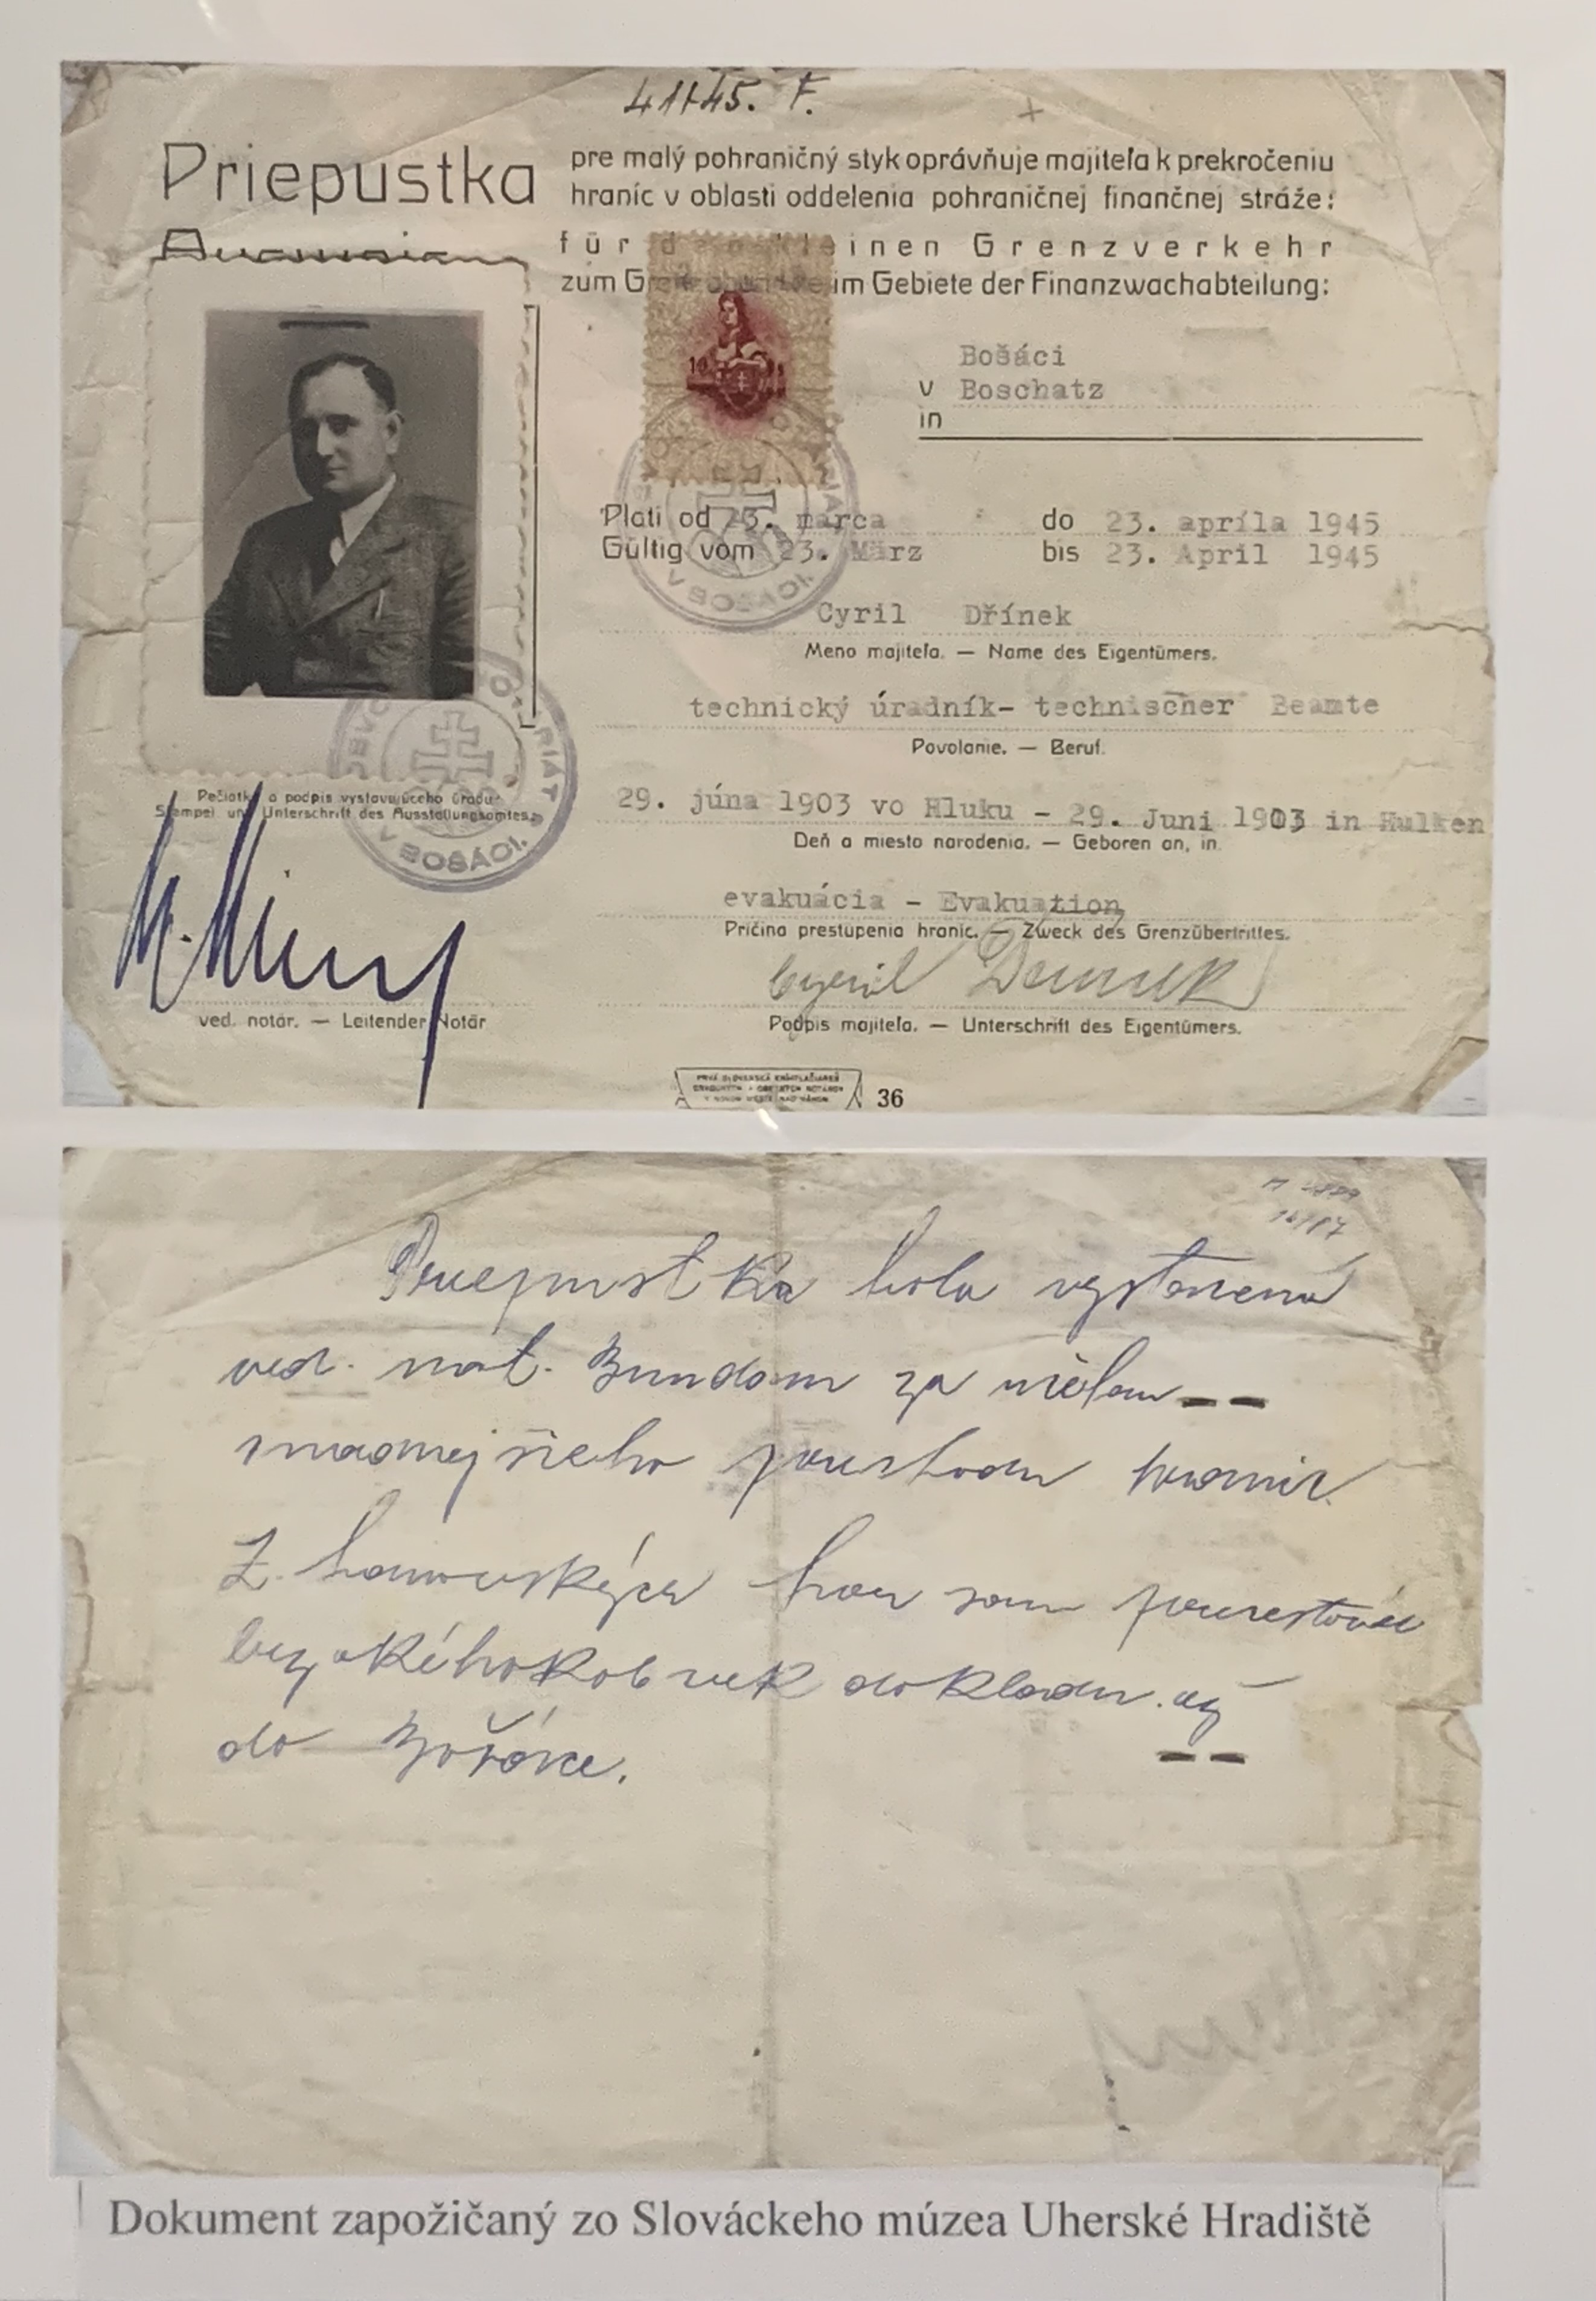 41/45. F.
Priepustka
pre malý pohraničný styk oprávňuje majiteľa k prekročeniu
hraníc v oblasti oddelenia pohraničnej finančnej stráže:
für einen Grenzverkehr
zum im Gebiete der Finanzwachabteilung:
Bošáci
v Boschatz
in
Platí od 23. marca do 23. apríla 1945
Gültig vom 23. März bis 23. April 1945
Cyril Dřínek
Meno majiteľa. — Name des Eigentümers.
technický úradník- technischer Beamte
Povolanie. — Beruf.
29. júna 1903 vo Hluku - 29. Juni 1903 in Hulken
Deň a miesto narodenia. — Geboren an, in.
evakuácia - Evakuation
Príčina prestúpenia hraníc. — Zweck des Grenzübertrittes.
Cyril Dřínek
Podpis majiteľa. — Unterschrift des Eigentümers.
Pečiatka a podpis vystavujúceho úradu
Stempel und Unterschrift des Ausstellungsamtes.
V BOŠÁCI.
V BOŠÁCI.
ved. notár. — Leitender Notär
PRVÁ SLOVENSKÁ KNÍHTLAČIAREŇ
OBVODNÝCH A OBECNÝCH NOTÁROV
V NOVOM MESTE NAD VÁHOM
36
Priepustka bola vystavená
ved. not. za účelom
snadnejšieho prechodu hraníc.
Z hor som
bez akéhokoľvek dokladu.
do Bošáce.
Dokument zapožičaný zo Slováckeho múzea Uherské Hradiště